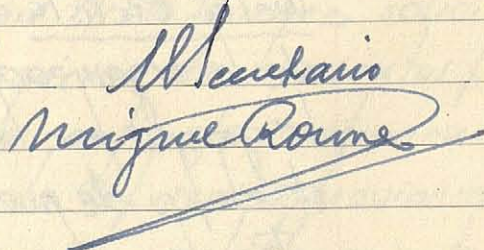 El Secretario
Miguel